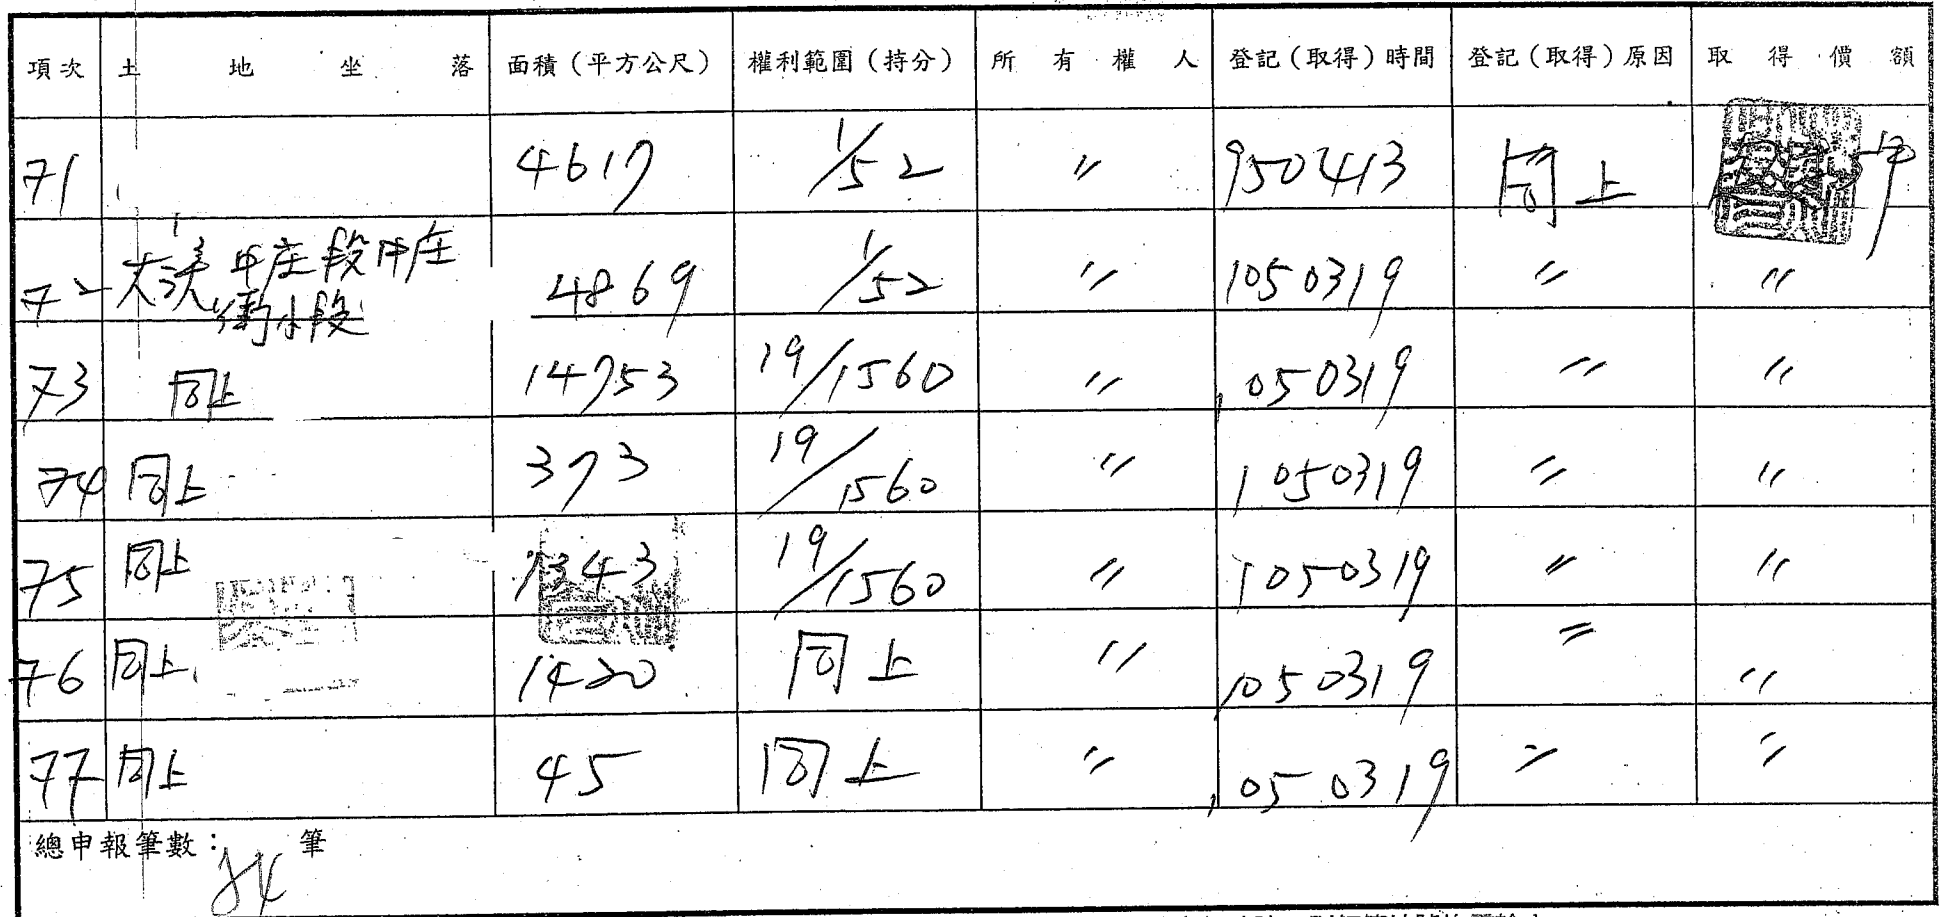 項次 土地坐落 面積(平方公尺) 權利範圍(持分) 所有權人 登記(取得)時間 登記(取得)原因 取得價額
71 4617 1/52 〃 950413 同上
72 大溪 段 庄 4869 1/52 〃 1050319 〃 〃
小段
73 同上 14753 19/1560 〃 1050319 〃 〃
74 同上 373 19/1560 〃 1050319 〃 〃
75 同上 1343 19/1560 〃 1050319 〃 〃
76 同上 1420 同上 〃 1050319 〃 〃
77 同上 45 同上 〃 1050319 〃 〃
總申報筆數: 筆